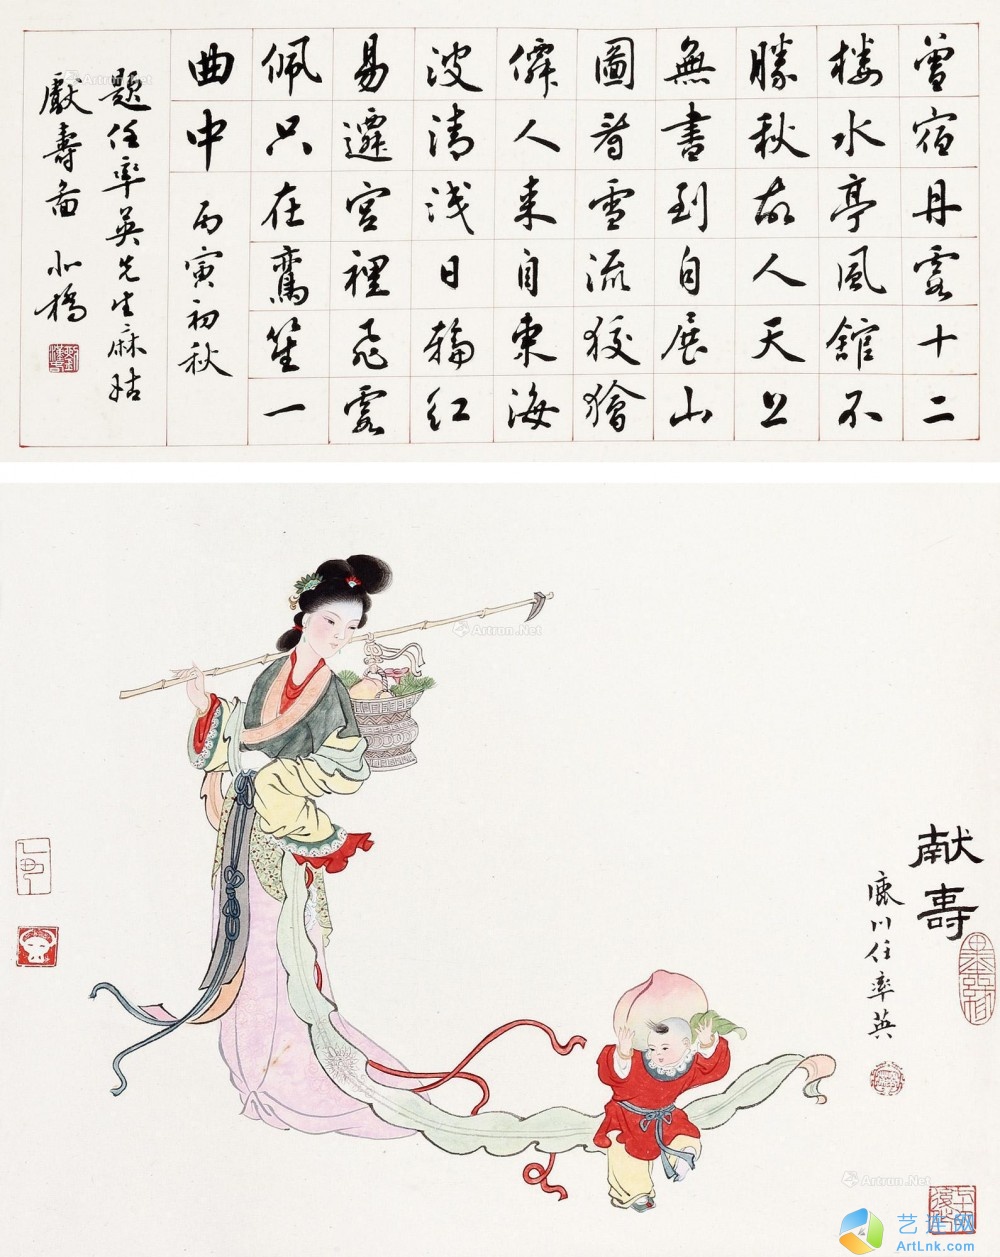 曾宿丹霞十二
楼水亭風館不
勝秋故人天上
無書到自展山
圖看雪流狡獪
僊人来自東海
波清浅日輪紅
易遷宫裡飛霞
佩只在鸞笙一
曲中 丙寅初秋
题任率英先生麻姑
獻壽啚
Artron.Net
Artron.Net
献壽
鹿川任率英
Artron.Net
艺连网
ArtLnk.com